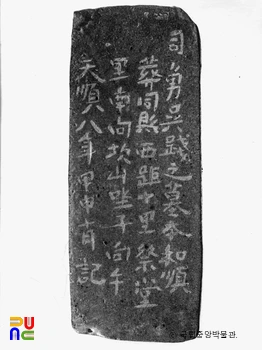 司勇吳踐之墓本知順
葬同縣西距十里祭堂
里南向坎山坐子向午
天順八年甲申 月 記
PUNC
국립중앙박물관.